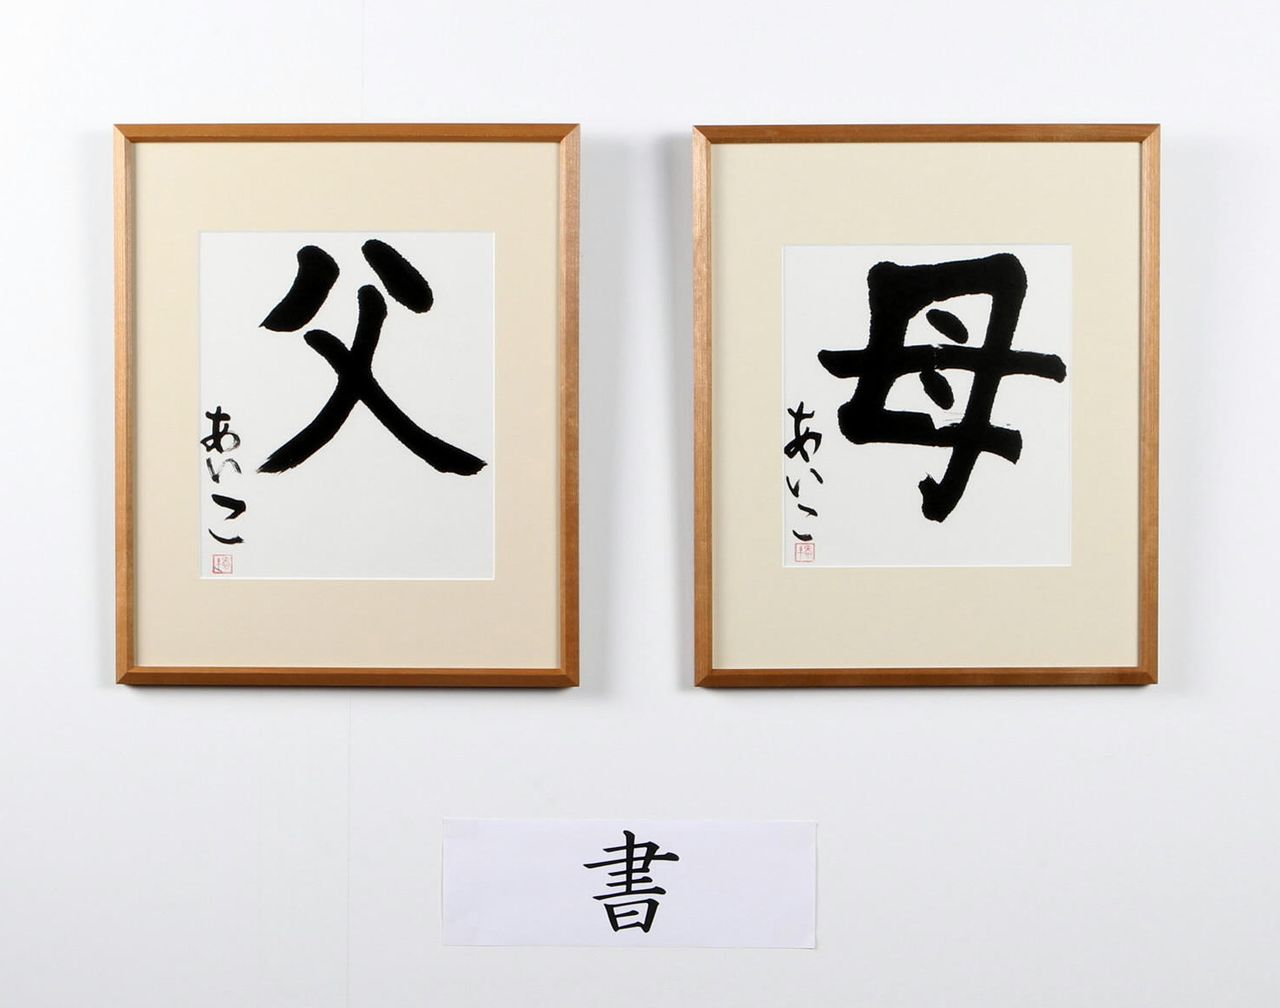 父
あいこ
母
あいこ
書